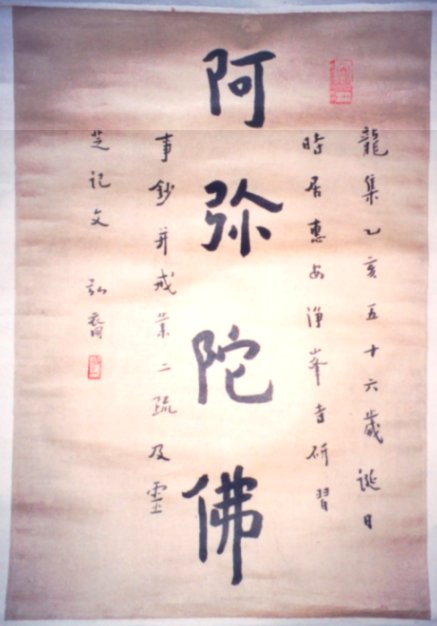 龍集乙亥五十六歲誕日
時居惠安淨峯寺研習
阿弥陀佛
事鈔并戒業二疏及靈
芝記文 弘裔